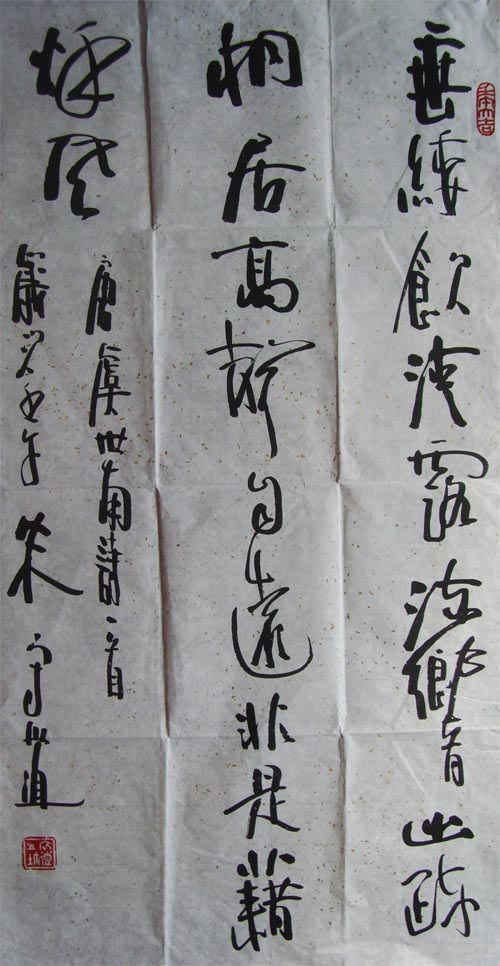 垂緌飲清露流響出疏
桐居高聲自遠非是藉
秋風
唐虞世南詩一首
歲年朱守道